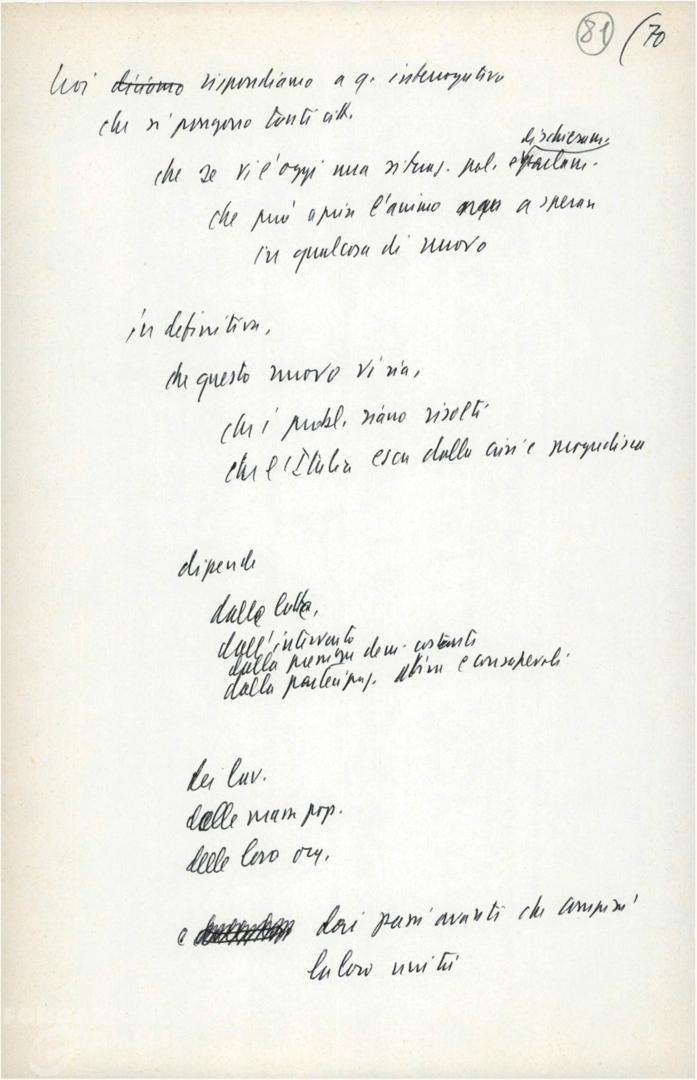 81 (70
Noi diciamo rispondiamo a q. interrogativo
che si pongono tanti citt.
dischieram.
che se vi è oggi una situaz. pol. e parlam.
che può aprire l'animo a sperare
in qualcosa di nuovo
in definitiva,
che questo nuovo vi sia,
che i probl. siano risolti
che l'Italia esca dalla crisi e progredisca
dipende
dalla lotta,
dall'intervento
dalla pressione dem. costante
dalla partecipaz. attiva e consapevole
dei lav.
delle masse pop.
delle loro org.
e dai passi avanti che compirà
la loro unità